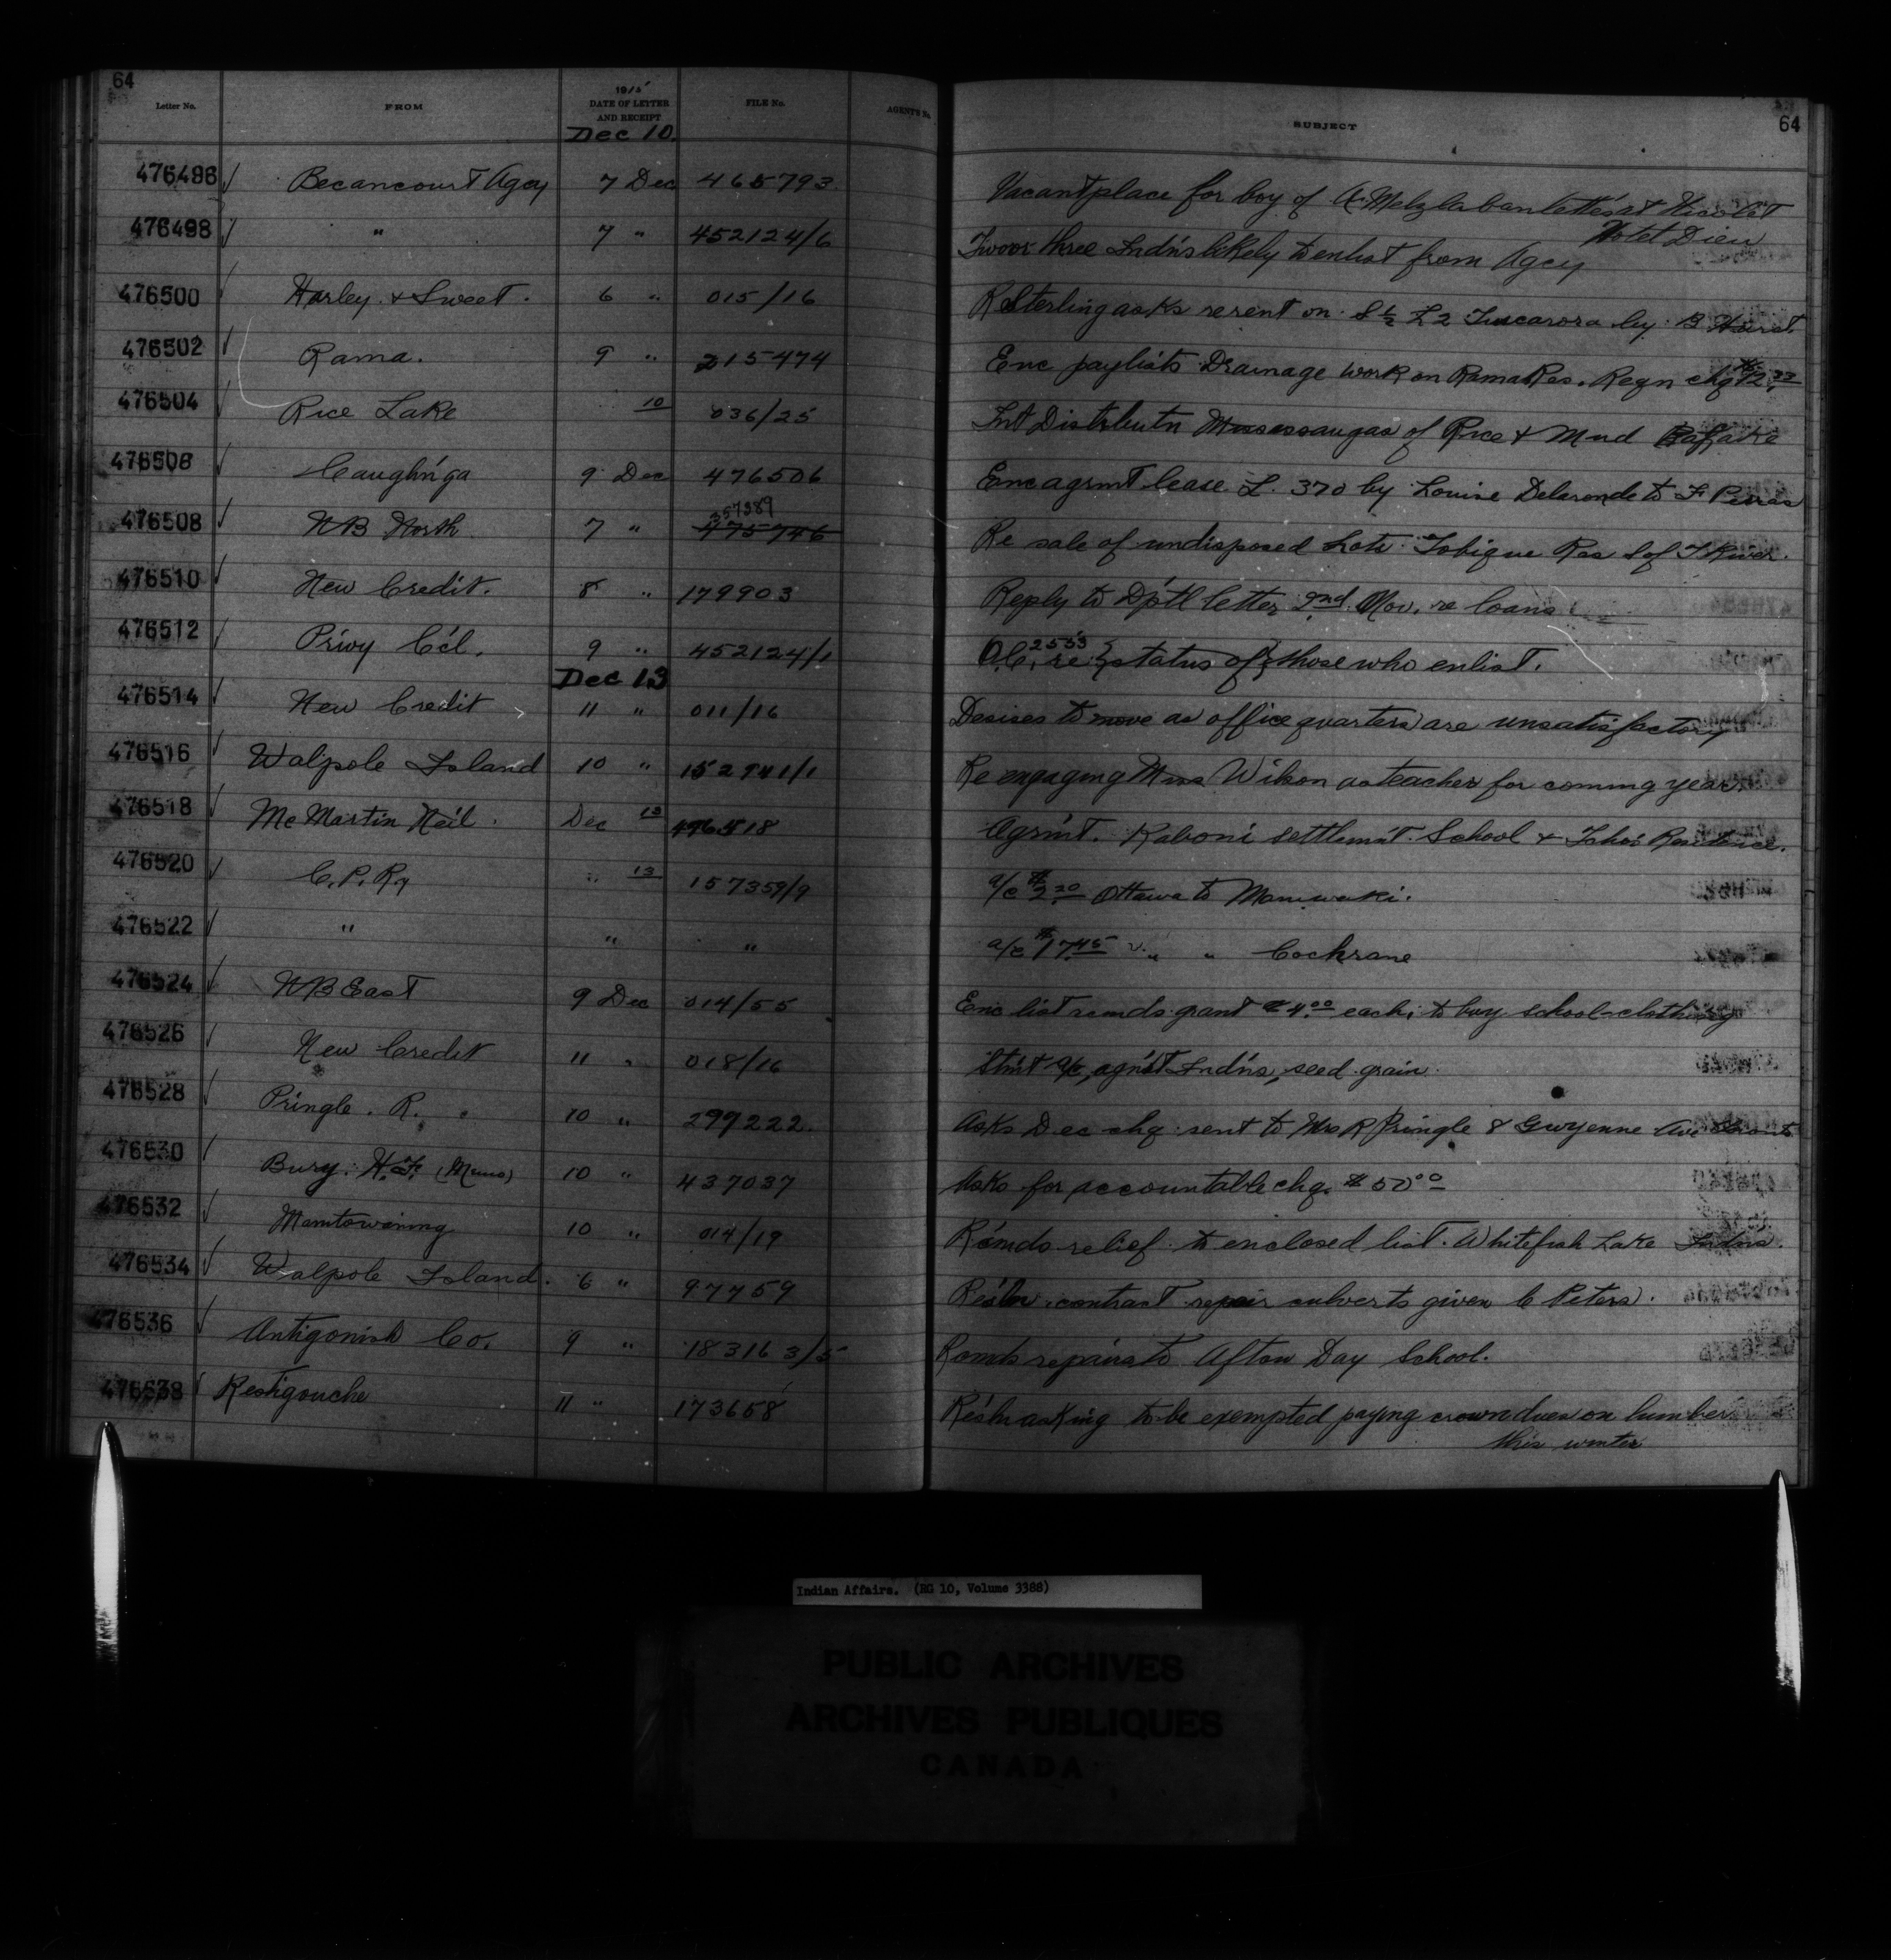 64
Letter No. FROM 1915 DATE OF LETTER AND RECEIPT FILE No. AGENT'S No. SUBJECT 64
Dec 10
476496 Becancourt Agcy 7 Dec 465793 Vacant place for boy of at Nicolet
Hotel Dieu
476498 " 7 " 452124/6 Two or three Indn's likely to enlist from Agcy
476500 Harley & Sweet. 6 " 015/16 R Sterling asks re rent on S ½ L 2 Tuscarora by B
476502 Rama. 9 " 215474 Enc paylists Drainage work on Rama Res. Reqn chq
476504 Rice Lake 10 036/25 Int Distributn Mississaugas of Rice & Mud
476506 Caughn'ga 9 Dec 476506 Enc agrmt lease L. 370 by Louise Delaronde to F Perras
476508 N B North 7 " 357389 475746 Re sale of undisposed Lots Tobique Res S of T River.
476510 New Credit. 8 " 179903 Reply to D'ptl letter 2nd Nov. re loans
476512 Privy C'cl. 9 " 452124/1 O.C. 2553 re status of those who enlist.
Dec 13
476514 New Credit 11 " 011/16 Desires to move as office quarters are unsatisfactory
476516 Walpole Island 10 " 152941/1 Re engaging Miss Wilson as teacher for coming year.
476518 Mc Martin Neil. Dec 13 476518 Agrm't. Kaboni settlem't School & Tchrs Residence.
476520 C. P. Ry " 13 157359/9 a/c $2.20 Ottawa to Maniwaki.
476522 " " " a/c $17.45 " " Cochrane
476524 N B East 9 Dec 014/55 Enc list rcmds grant $4.00 each, to buy school clothing
476526 New Credit 11 " 018/16 Stm't a/c, agn'st Indn's, seed grain
476528 Pringle. R. 10 " 299222. Asks Dec chq sent to Mrs R Pringle 8 Gwyenne Ave Toronto
476530 Bury. H. F. 10 " 437037 Asks for accountable chq. $50.00
476532 Manitowaning 10 " 014/19 R'cmds relief to enclosed list. Whitefish Lake Indns.
476534 Walpole Island. 6 " 97759 Res'ln contract repair culverts given C Peters.
476536 Antigonish Co. 9 " 183163/5 Rcmds repairs to Afton Day School.
476538 Restigouche 11 " 173658 Res'ln asking to be exempted paying crown dues on lumber
this winter
Indian Affairs. (RG 10, Volume 3388)
PUBLIC ARCHIVES
ARCHIVES PUBLIQUES
CANADA